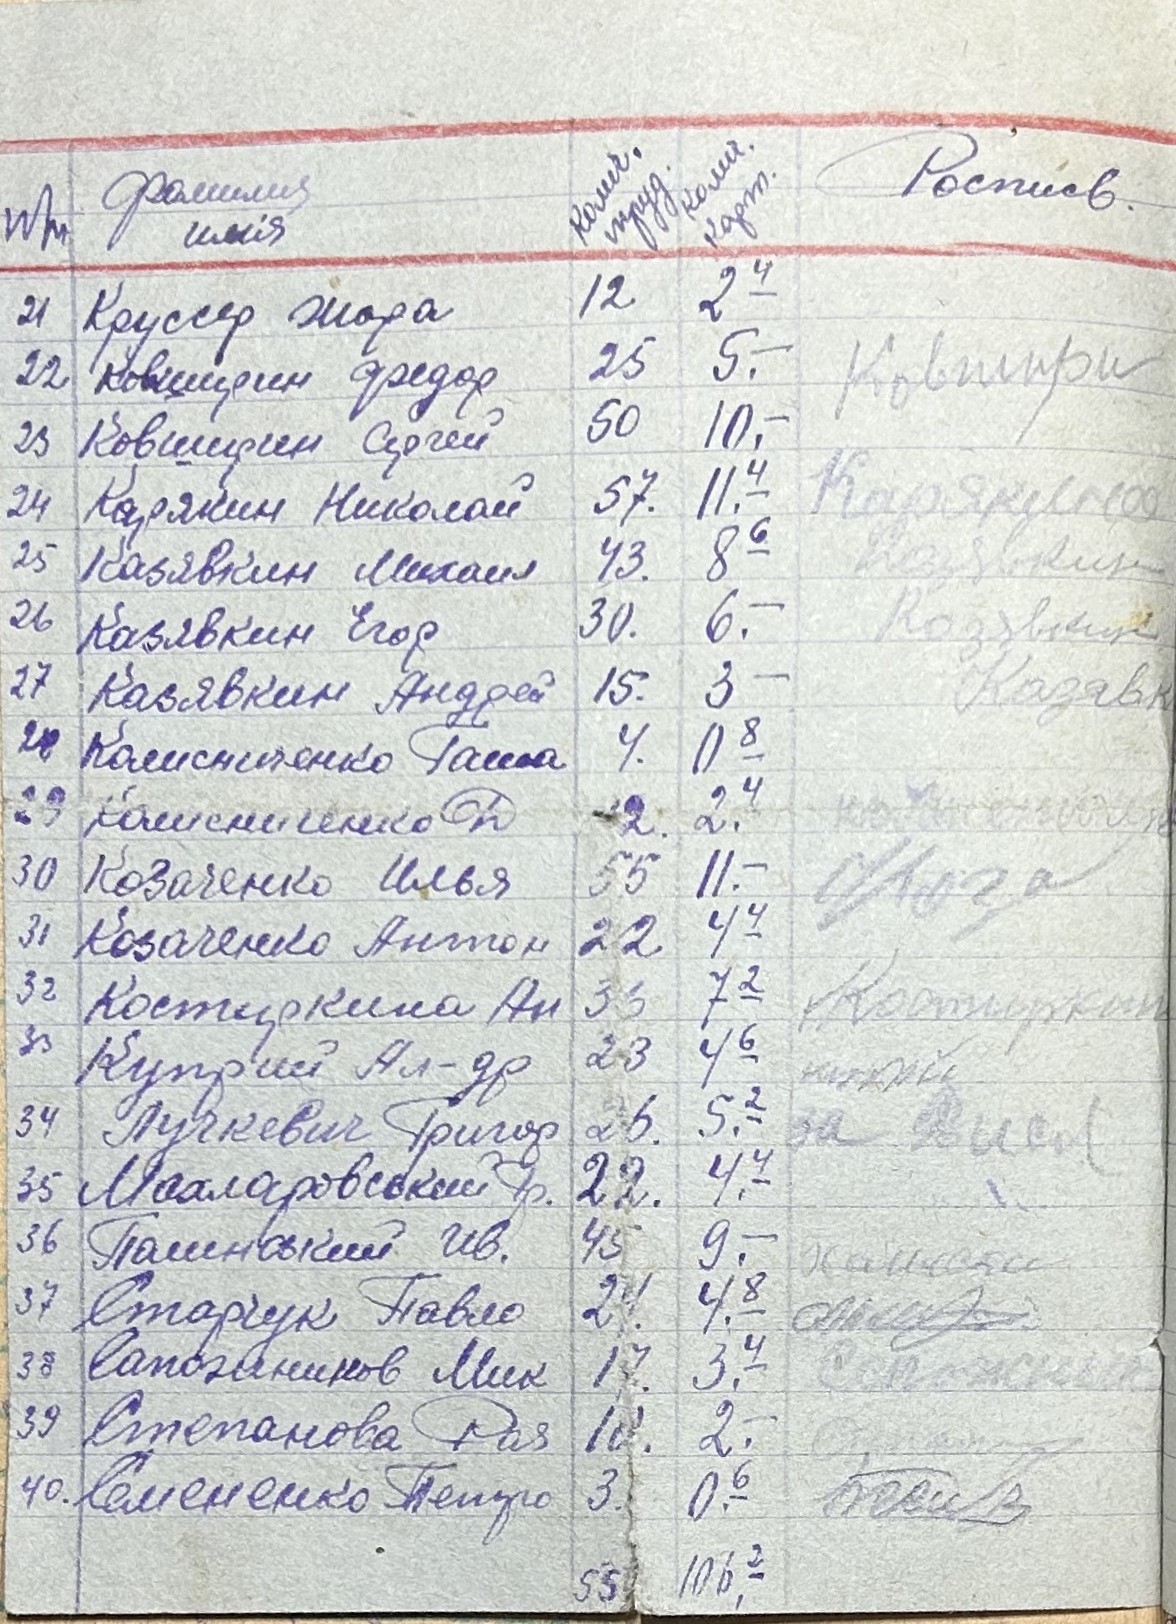 № Фамилия имя Колич. труд. Колич. карт. Роспись.
21 Круссер Жора 12 2 4
22 Ковширин Федор 25 5.– Ковшири
23 Ковширин Сергей 50 10,–
24 Карякин Николай 57. 11.4
25 Казявкин Михаил 43. 8 6 Казявкин
26 Казявкин Егор 30. 6.– Казявкин
27 Казявкин Андрей 15. 3 – Казявк
28 Колисниченко Гаша 4. 0 8
29 Колисниченко 2. 2.4
30 Козаченко Илья 55 11.–
31 Козаченко Антон 22 4 4
32 Костыркина Ан 7 2
33 Куприй Ал-др 23 4 6
34 Лучкевич Григор 26. 5.2 за
35 22. 4.4
36 Ив. 45 9.–
37 Старчук Павло 24. 4.8
38 Сапожников Мик 17. 3.4
39 Степанова Рая 10. 2.–
40. Семененко Петро 3. 0.6
55 106,2